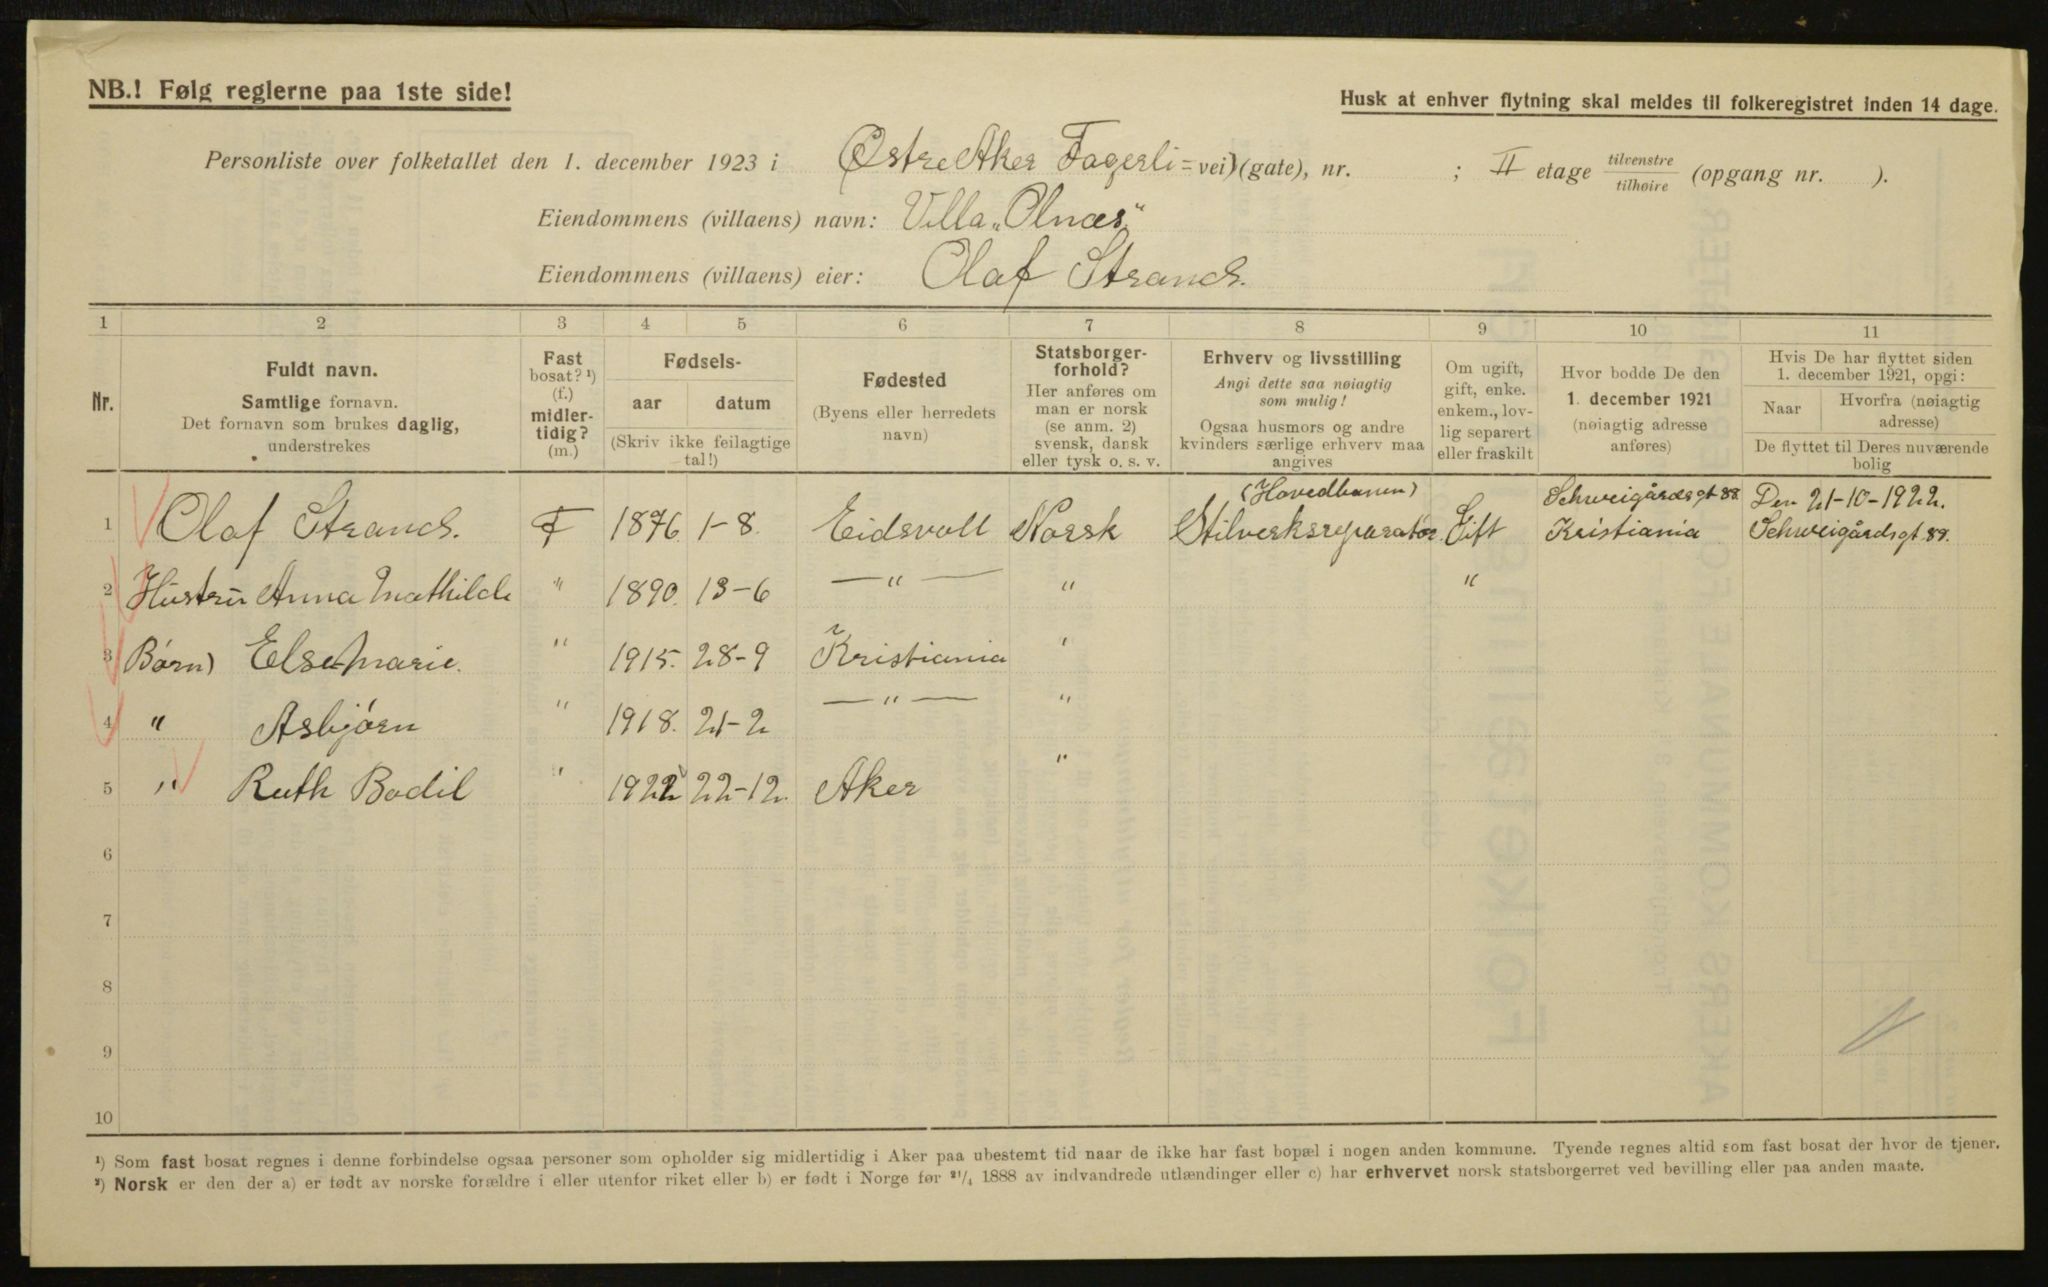 NB.! Følg reglerne paa 1ste side!
Husk at enhver flytning skal meldes til folkeregistret inden 14 dage.
Personliste over folketallet den 1. december 1923 i Østre Aker Fagerli=vei) (gate), nr. ; II etage tilvenstre/tilhøire (opgang nr. ).
Eiendommens (villaens) navn: Villa „Olnæs“
Eiendommens (villaens) eier: Olaf Strand.
1 2 3 4 5 6 7 8 9 10 11
Nr.
Fuldt navn.
Samtlige fornavn.
Det fornavn som brukes daglig,
understrekes
Fast
bosat? ¹)
(f.)
midler-
tidig?
(m.)
Fødsels-
aar datum
(Skriv ikke feilagtige
tal!)
Fødested
(Byens eller herredets
navn)
Statsborger-
forhold?
Her anføres om
man er norsk
(se anm. 2)
svensk, dansk
eller tysk o. s. v.
Erhverv og livsstilling
Angi dette saa nøiagtig
som mulig!
Ogsaa husmors og andre
kvinders særlige erhverv maa
angives
Om ugift,
gift, enke.
enkem., lov-
lig separert
eller fraskilt
Hvor bodde De den
1. december 1921
(nøiagtig adresse
anføres)
Hvis De har flyttet siden
1. december 1921, opgi:
Naar Hvorfra (nøiagtig
adresse)
De flyttet til Deres nuværende
bolig
(Hovedbanen) Schweigårdsgt 89. Den 21-10-1922.
1 Olaf Strand. F 1876. 1-8. Eidsvoll Norsk Stilverksreparatør. Gift Kristiania Schweigårdsgt. 89.
2 Hustru Anna Mathilde " 1890. 13-6 — " — " "
3 Børn) Else Marie. " 1915. 28-9 Kristiania "
4 " Asbjørn " 1918. 21-2 — " — "
5 " Ruth Bodil " 1922 22-12. Aker "
6
7
8
9
10
¹) Som fast bosat regnes i denne forbindelse ogsaa personer som opholder sig midlertidig i Aker paa ubestemt tid naar de ikke har fast bopæl i nogen anden kommune. Tyende regnes altid som fast bosat der hvor de tjener.
²) Norsk er den der a) er født av norske forældre i eller utenfor riket eller b) er født i Norge før ²¹/₄ 1888 av indvandrede utlændinger eller c) har erhvervet norsk statsborgerret ved bevilling eller paa anden maate.